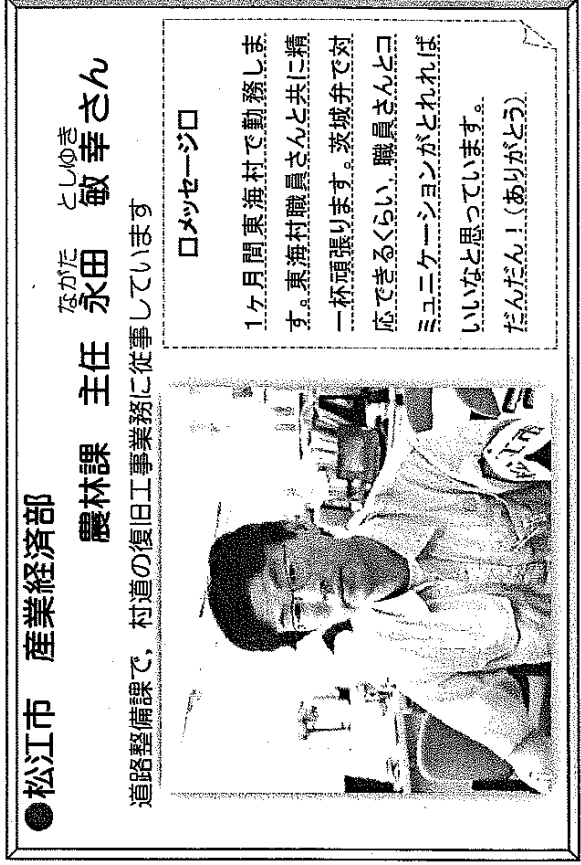 ●松江市　産業経済部
農林課　主任　永田　敏幸さん
ながた　としゆき
道路整備課で，村道の復旧工事業務に従事しています
□メッセージ□
1ヶ月間東海村で勤務しま
す。東海村職員さんと共に精
一杯頑張ります。茨城弁で対
応できるくらい，職員さんとコ
ミュニケーションがとれれば
いいなと思っています。
だんだん！（ありがとう）